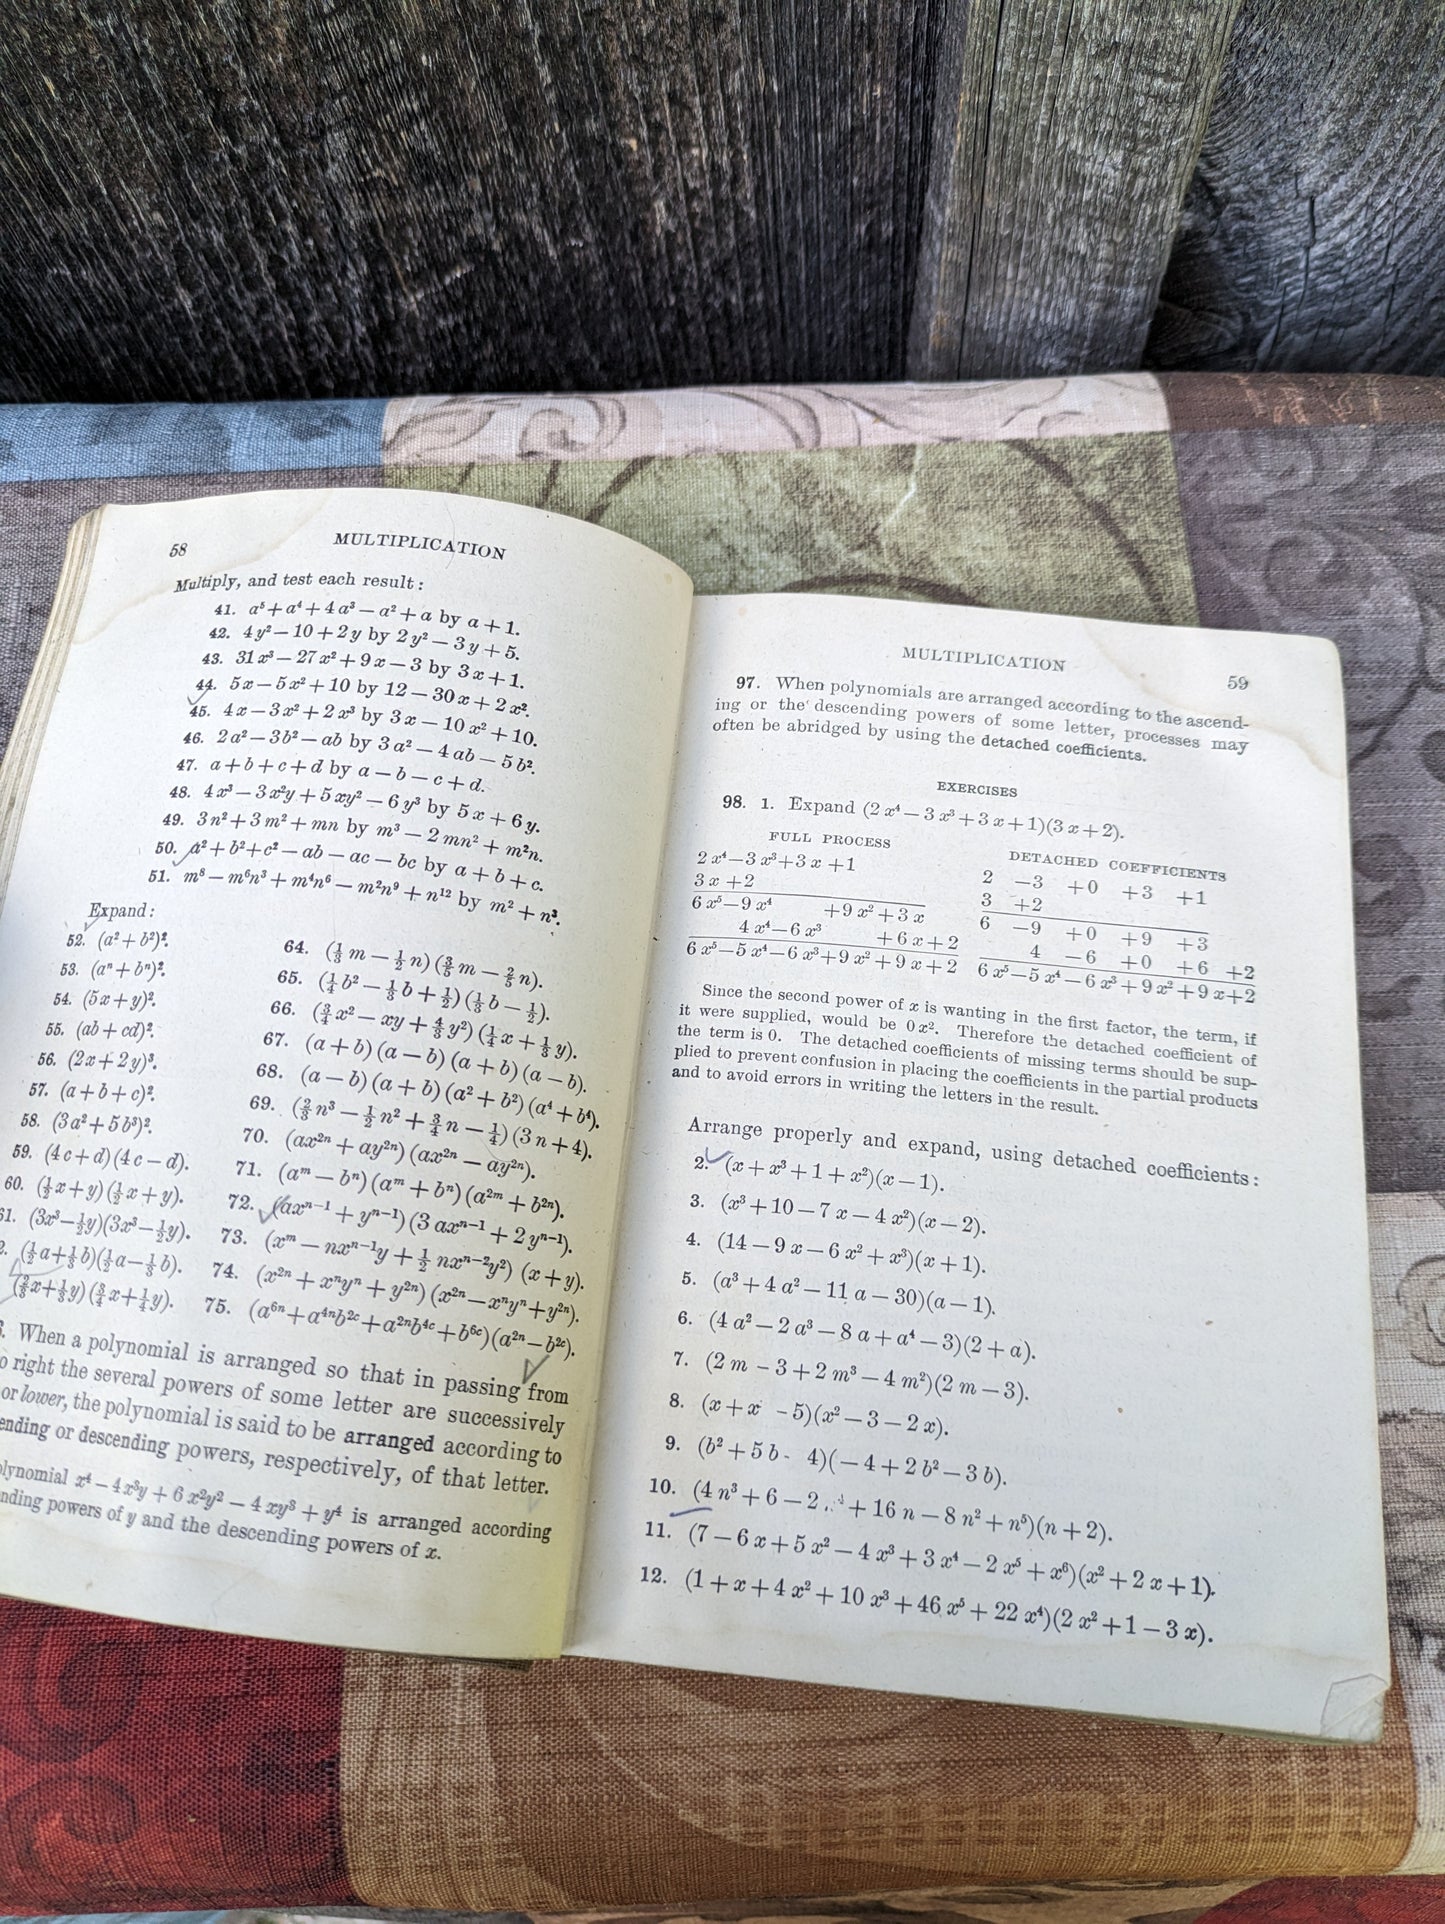 58 MULTIPLICATION
Multiply, and test each result:
41. a⁵ + a⁴ + 4 a³ − a² + a by a + 1.
42. 4 y² − 10 + 2 y by 2 y² − 3 y + 5.
43. 31 x³ − 27 x² + 9 x − 3 by 3 x + 1.
44. 5 x − 5 x² + 10 by 12 − 30 x + 2 x².
45. 4 x − 3 x² + 2 x³ by 3 x − 10 x² + 10.
46. 2 a² − 3 b² − ab by 3 a² − 4 ab − 5 b².
47. a + b + c + d by a − b − c + d.
48. 4 x³ − 3 x²y + 5 xy² − 6 y³ by 5 x + 6 y.
49. 3 n² + 3 m² + mn by m³ − 2 mn² + m²n.
50. a² + b² + c² − ab − ac − bc by a + b + c.
51. m⁸ − m⁶n³ + m⁴n⁶ − m²n⁹ + n¹² by m² + n³.
Expand:
52. (a² + b²)².
53. (aⁿ + bⁿ)².
54. (5 x + y)².
55. (ab + cd)².
56. (2 x + 2 y)³.
57. (a + b + c)².
58. (3 a² + 5 b³)².
59. (4 c + d)(4 c − d).
60. (½ x + y)(½ x + y).
61. (3x³ − ½y)(3x³ − ½y).
(½ a + ⅓ b)(½ a − ⅓ b).
(⅔ x + ⅓ y)(¾ x + ¼ y).
64. (⅓ m − ½ n)(⅗ m − ⅖ n).
65. (¼ b² − ⅓ b + ½)(⅓ b − ½).
66. (¾ x² − xy + ⁴⁄₃ y²)(¼ x + ⅓ y).
67. (a + b)(a − b)(a + b)(a − b).
68. (a − b)(a + b)(a² + b²)(a⁴ + b⁴).
69. (⅔ n³ − ½ n² + ¾ n − ¼)(3 n + 4).
70. (ax²ⁿ + ay²ⁿ)(ax²ⁿ − ay²ⁿ).
71. (aᵐ − bⁿ)(aᵐ + bⁿ)(a²ᵐ + b²ⁿ).
72. (axⁿ⁻¹ + yⁿ⁻¹)(3 axⁿ⁻¹ + 2 yⁿ⁻¹).
73. (xᵐ − nxⁿ⁻¹y + ½ nxⁿ⁻²y²)(x + y).
74. (x²ⁿ + xⁿyⁿ + y²ⁿ)(x²ⁿ − xⁿyⁿ + y²ⁿ).
75. (a⁶ⁿ + a⁴ⁿb²ᶜ + a²ⁿb⁴ᶜ + b⁶ᶜ)(a²ⁿ − b²ᶜ).
When a polynomial is arranged so that in passing from
right the several powers of some letter are successively
or lower, the polynomial is said to be arranged according to
or descending powers, respectively, of that letter.
x⁴ − 4 x³y + 6 x²y² − 4 xy³ + y⁴ is arranged according
powers of y and the descending powers of x.
MULTIPLICATION 59
97. When polynomials are arranged according to the ascend-
ing or the descending powers of some letter, processes may
often be abridged by using the detached coefficients.
EXERCISES
98. 1. Expand (2 x⁴ − 3 x³ + 3 x + 1)(3 x + 2).
FULL PROCESS
2 x⁴ − 3 x³ + 3 x + 1
3 x + 2
6 x⁵ − 9 x⁴ + 9 x² + 3 x
4 x⁴ − 6 x³ + 6 x + 2
6 x⁵ − 5 x⁴ − 6 x³ + 9 x² + 9 x + 2
DETACHED COEFFICIENTS
2 −3 +0 +3 +1
3 +2
6 −9 +0 +9 +3
4 −6 +0 +6 +2
6 x⁵ − 5 x⁴ − 6 x³ + 9 x² + 9 x + 2
Since the second power of x is wanting in the first factor, the term, if
it were supplied, would be 0 x². Therefore the detached coefficient of
the term is 0. The detached coefficients of missing terms should be sup-
plied to prevent confusion in placing the coefficients in the partial products
and to avoid errors in writing the letters in the result.
Arrange properly and expand, using detached coefficients:
2. (x + x³ + 1 + x²)(x − 1).
3. (x³ + 10 − 7 x − 4 x²)(x − 2).
4. (14 − 9 x − 6 x² + x³)(x + 1).
5. (a³ + 4 a² − 11 a − 30)(a − 1).
6. (4 a² − 2 a³ − 8 a + a⁴ − 3)(2 + a).
7. (2 m − 3 + 2 m³ − 4 m²)(2 m − 3).
8. (x + x − 5)(x² − 3 − 2 x).
9. (b² + 5 b - 4)(− 4 + 2 b² − 3 b).
10. (4 n³ + 6 − 2 + 16 n − 8 n² + n⁵)(n + 2).
11. (7 − 6 x + 5 x² − 4 x³ + 3 x⁴ − 2 x⁵ + x⁶)(x² + 2 x + 1).
12. (1 + x + 4 x² + 10 x³ + 46 x⁵ + 22 x⁴)(2 x² + 1 − 3 x).